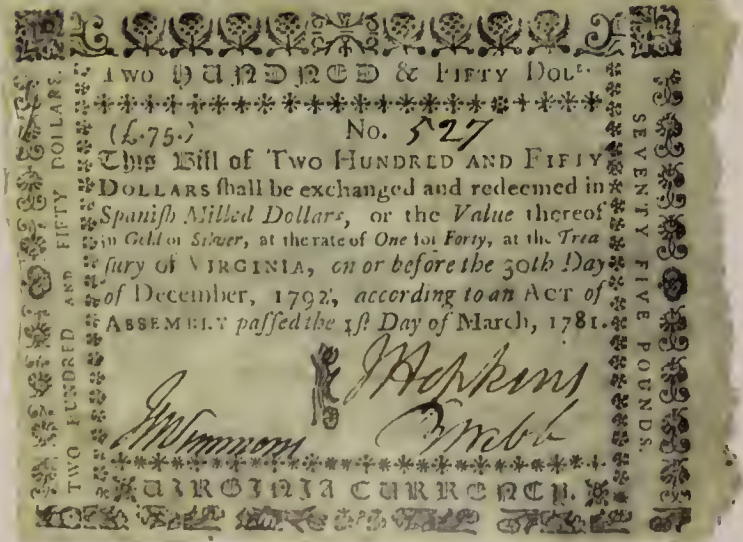 Two HUNDRED & FIFTY DOLrs
(£.75.) No. 527
This Bill of TWO HUNDRED AND FIFTY
DOLLARS ſhall be exchanged and redeemed in
Spaniſh Milled Dollars, or the Value thereof
in Gold or Silver, at the rate of One for Forty, at the Trea
ſury of VIRGINIA, on or before the 30th Day
of December, 1792, according to an ACT of
ASSEMBLY paſſed the 1ſt Day of March, 1781.
J Hopkins
J Simmons B Webb
VIRGINIA CURRENCY.
TWO HUNDRED AND FIFTY DOLLARS.
SEVENTY FIVE POUNDS.